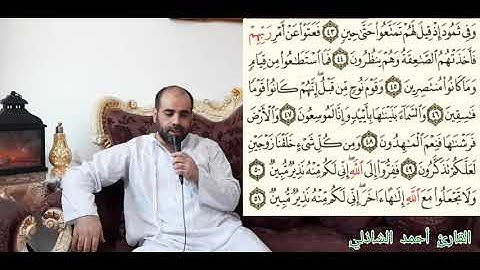 وَفِي ثَمُودَ إِذْ قِيلَ لَهُمْ تَمَتَّعُوا حَتَّىٰ حِينٍ ٤٣ فَعَتَوْا عَنْ أَمْرِ رَبِّهِمْ
فَأَخَذَتْهُمُ الصَّاعِقَةُ وَهُمْ يَنظُرُونَ ٤٤ فَمَا اسْتَطَاعُوا مِن قِيَامٍ
وَمَا كَانُوا مُنتَصِرِينَ ٤٥ وَقَوْمَ نُوحٍ مِّن قَبْلُ إِنَّهُمْ كَانُوا قَوْمًا
فَاسِقِينَ ٤٦ وَالسَّمَاءَ بَنَيْنَاهَا بِأَيْيدٍ وَإِنَّا لَمُوسِعُونَ ٤٧ وَالْأَرْضَ
فَرَشْنَاهَا فَنِعْمَ الْمَاهِدُونَ ٤٨ وَمِن كُلِّ شَيْءٍ خَلَقْنَا زَوْجَيْنِ
لَعَلَّكُمْ تَذَكَّرُونَ ٤٩ فَفِرُّوا إِلَى اللَّهِ إِنِّي لَكُم مِّنْهُ نَذِيرٌ مُّبِينٌ ٥٠
وَلَا تَجْعَلُوا مَعَ اللَّهِ إِلَٰهًا آخَرَ إِنِّي لَكُم مِّنْهُ نَذِيرٌ مُّبِينٌ ٥١
القارئ أحمد الشاذلي